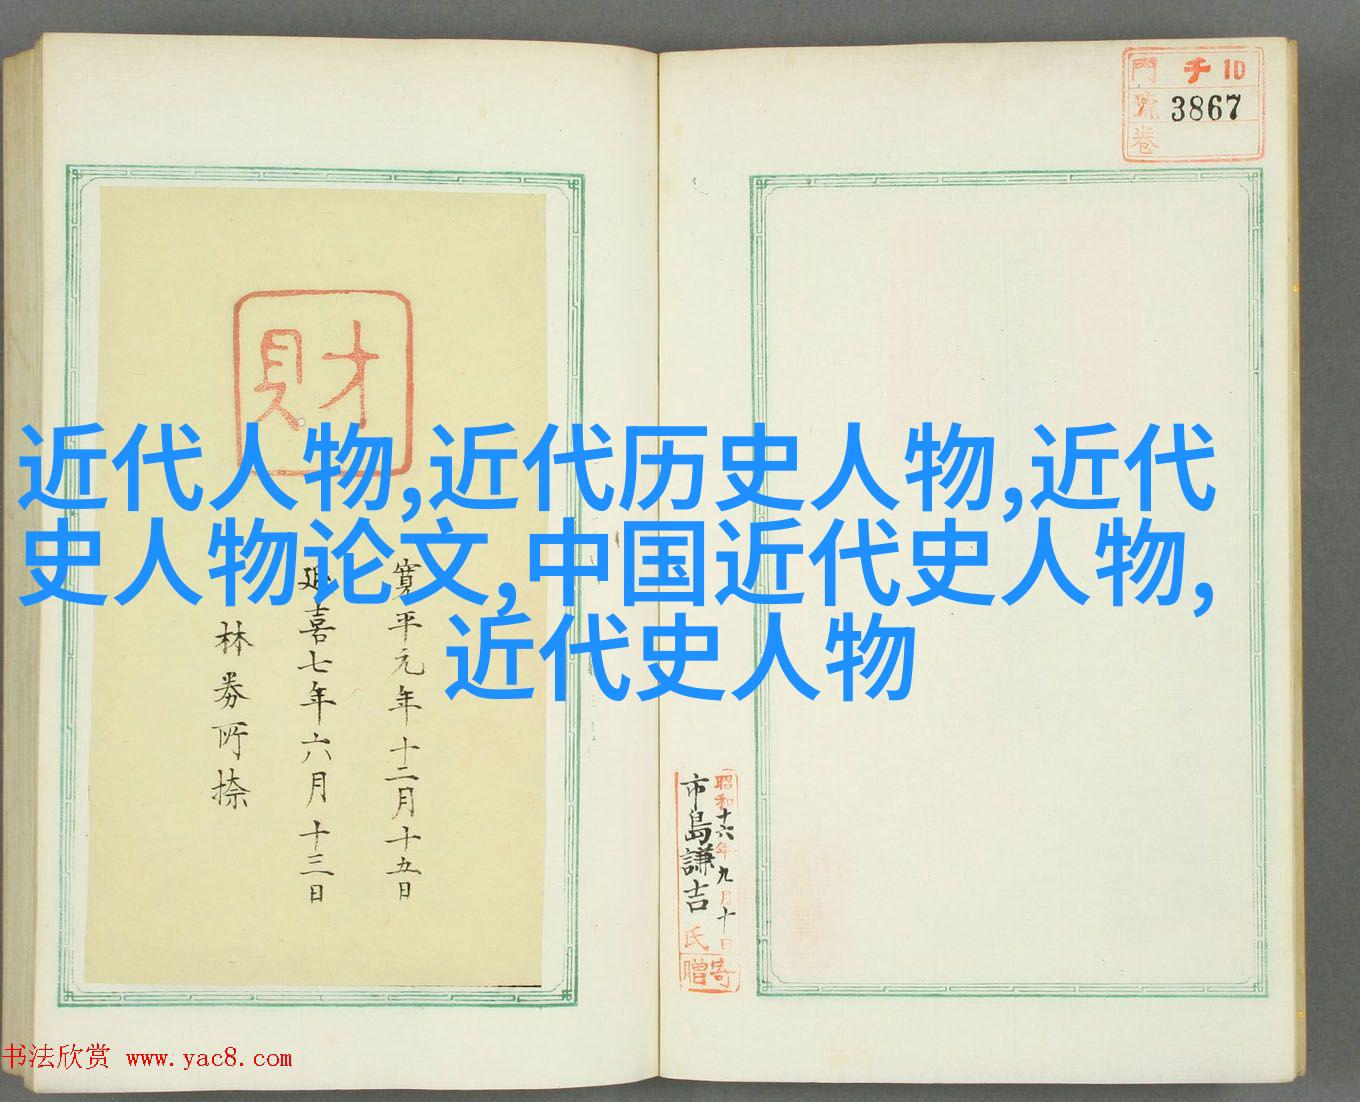 門 チ 10
號 3867
卷
財
近代人物,近代历史人物,近代
史人物论文,中国近代史人物,
近代史人物
寛平元年十二月十五日
延喜七年六月十三日
林券所捺
昭和十六年九月十日
市島謙吉氏
寄贈
书法欣赏 www.yac8.com